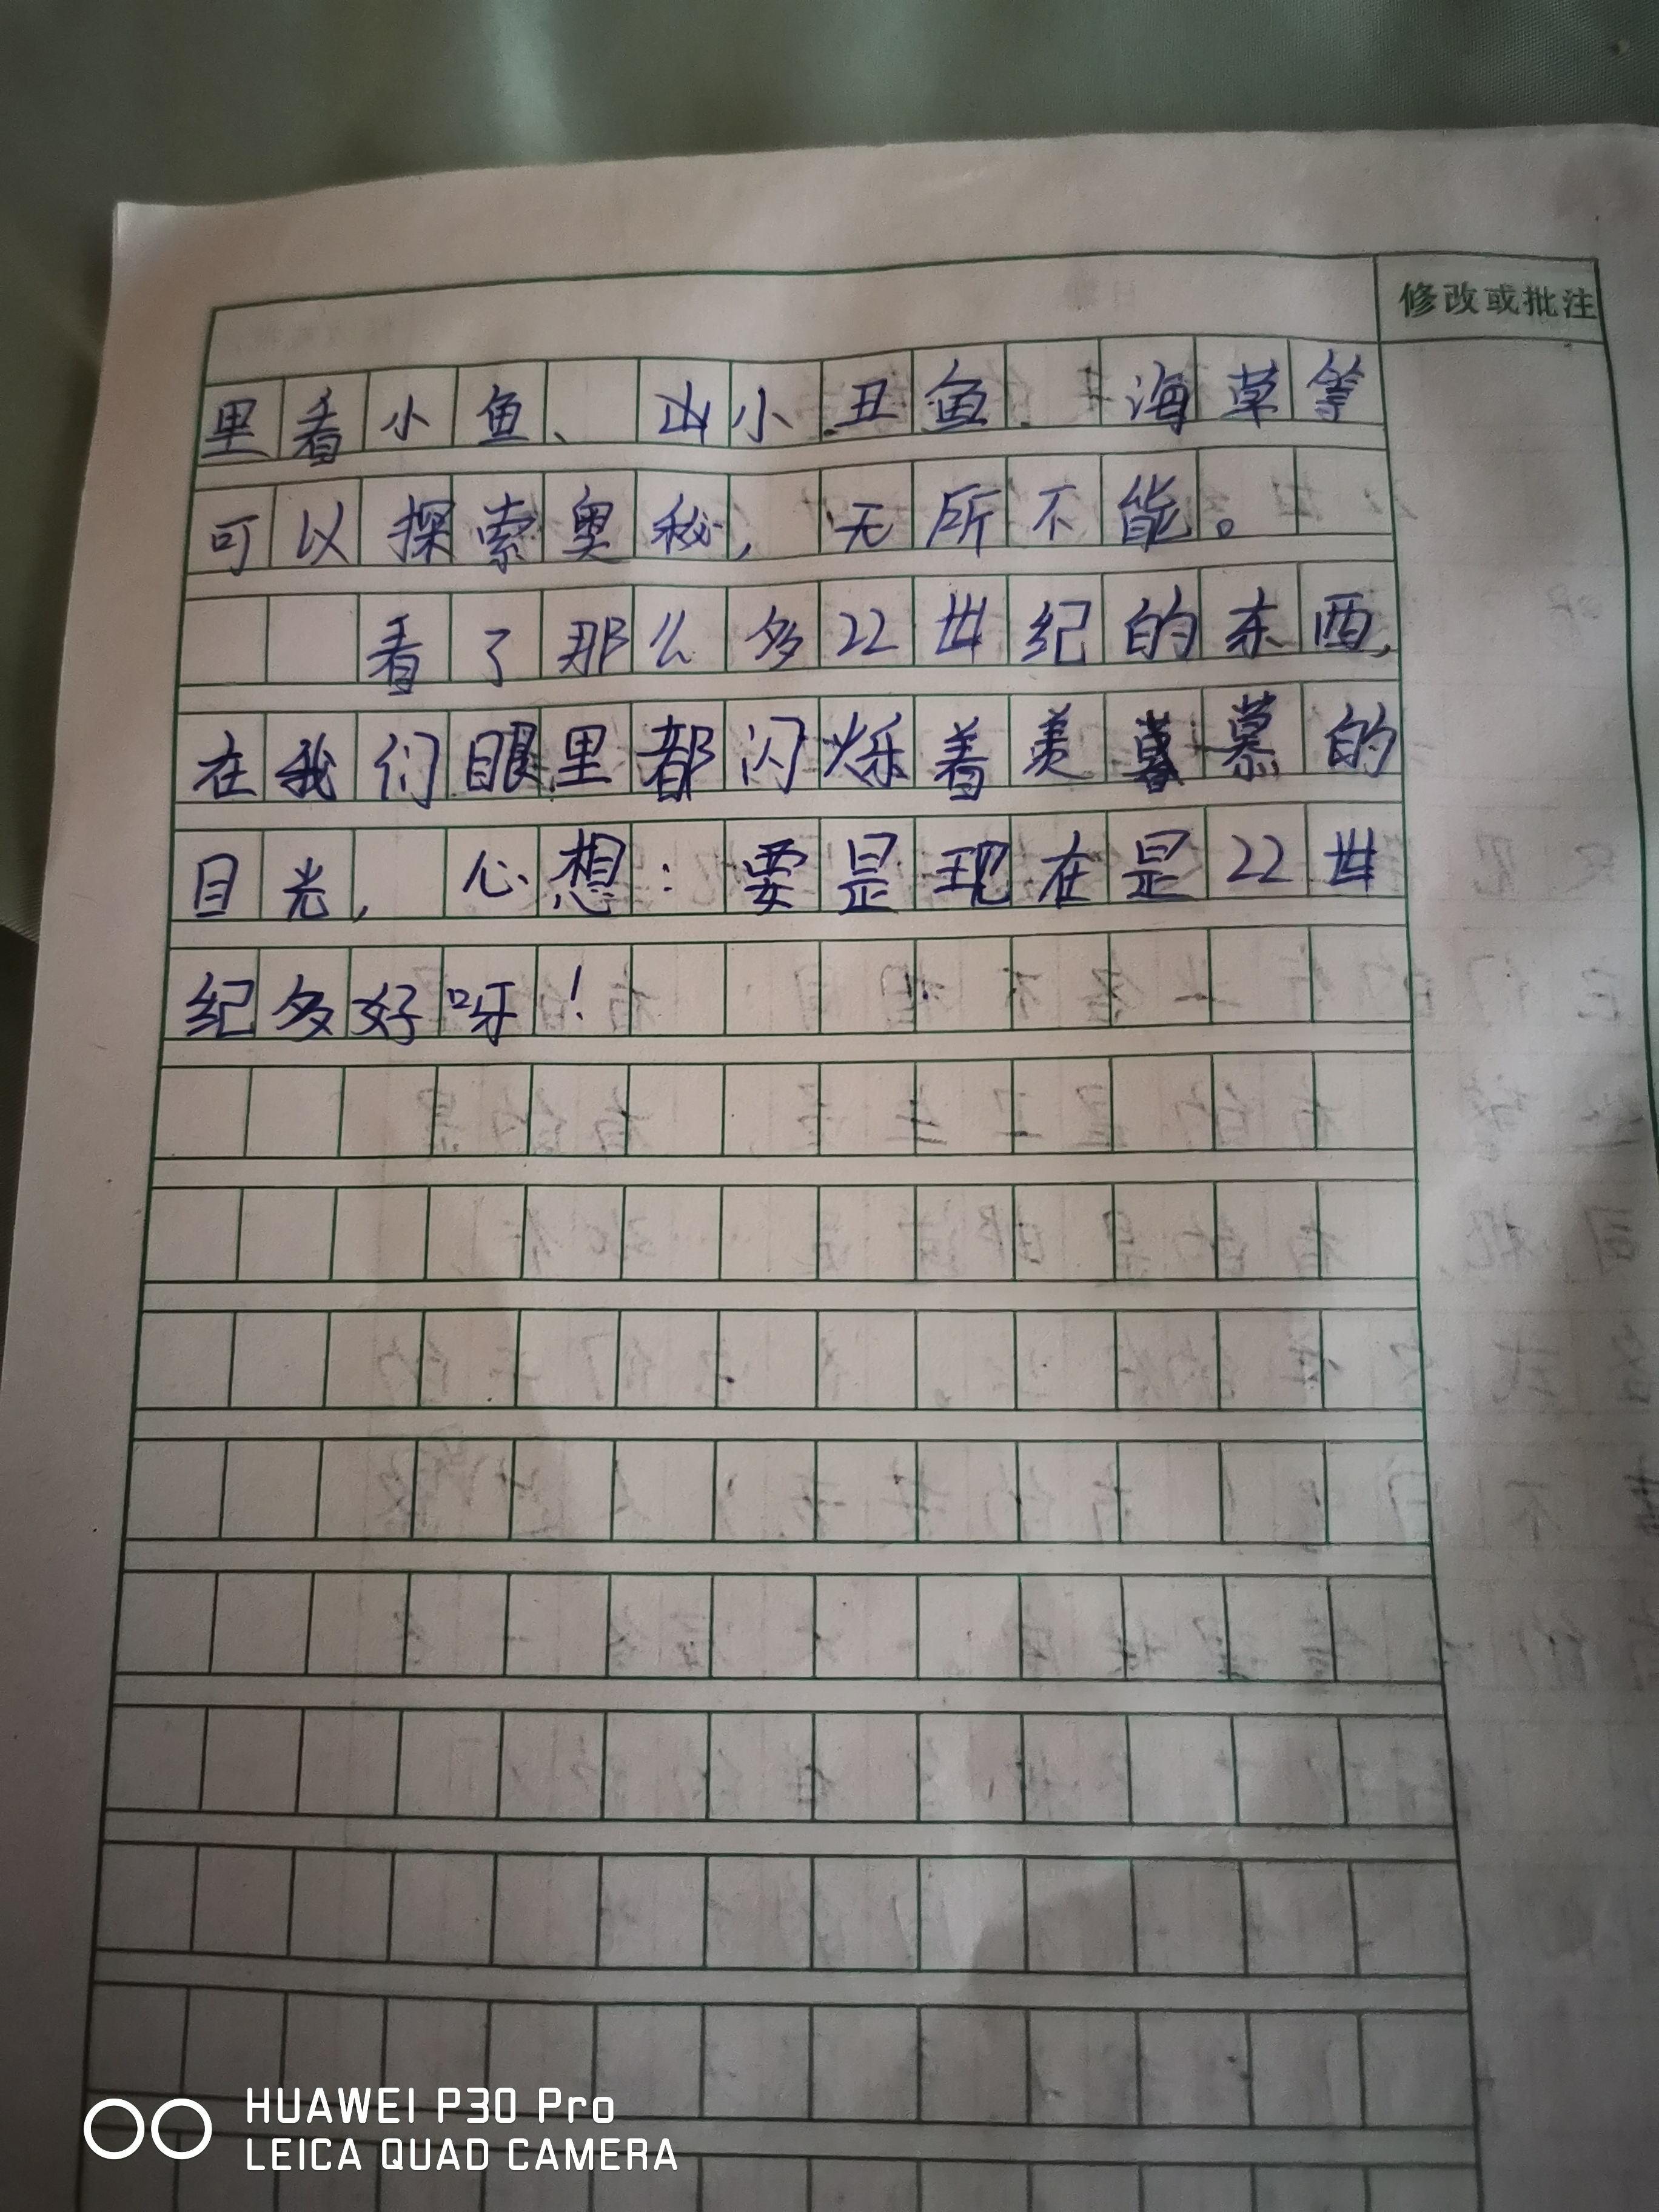 修改或批注
里看小鱼、小丑鱼、海草等
可以探索奥秘,无所不能。
看了那么多22世纪的东西,
在我们眼里都闪烁着羡慕的
目光,心想:要是现在是22世
纪多好呀!
HUAWEI P30 Pro
LEICA QUAD CAMERA